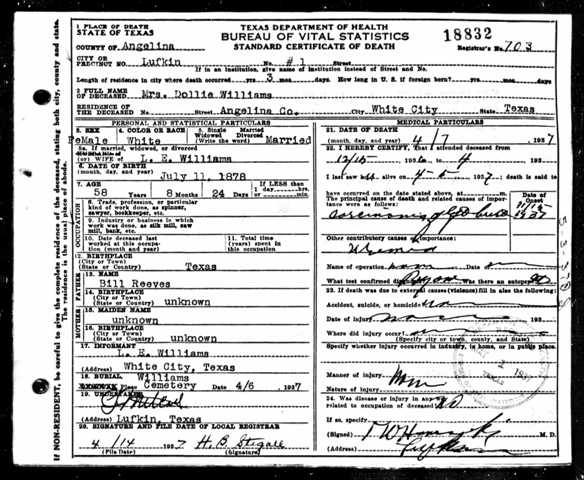 1 PLACE OF DEATH
STATE OF TEXAS
TEXAS DEPARTMENT OF HEALTH
BUREAU OF VITAL STATISTICS
STANDARD CERTIFICATE OF DEATH
18832
COUNTY OF Angelina
Registrar's No. 703
CITY OR PRECINCT Lufkin No. #1 Street
If in an institution, give name of institution instead of Street and No.
Length of residence in city where death occurred yrs. 3 mos. days. How long in U. S. if foreign born? yrs. mos. days
2 FULL NAME OF DECEASED Mrs. Dollie Williams
RESIDENCE OF THE DECEASED No. Street Angelina Co. City White City State Texas
PERSONAL AND STATISTICAL PARTICULARS
3. SEX feMale
4. COLOR OR RACE White
5. Single Married Widowed Divorced (Write the word) Married
5a. If married, widowed, or divorced
(or) WIFE of L. E. Williams
6. DATE OF BIRTH (month, day, and year) July 11, 1878
7. AGE 58 Years 8 Months 24 Days If LESS than 1 day hrs. min.
OCCUPATION
8. Trade, profession, or particular kind of work done, as spinner, sawyer, bookkeeper, etc.
9. Industry or business in which work was done, as silk mill, saw mill, bank, etc.
10. Date deceased last worked at this occupation (month and year)
11. Total time (years) spent in this occupation
12. BIRTHPLACE (City or Town) (State or Country) Texas
FATHER
13. NAME Bill Reeves
14. BIRTHPLACE (City or Town) (State or Country) unknown
MOTHER
15. MAIDEN NAME unknown
16. BIRTHPLACE (City or Town) (State or Country) unknown
17. INFORMANT L. E. Williams
(Address) White City, Texas
18. BURIAL Place Williams Cemetery Date 4/6 1937
19. UNDERTAKER
(Address) Lufkin, Texas
20. SIGNATURE AND FILE DATE OF LOCAL REGISTRAR
4/14 1937 H. B. Stegall
(File Date) (Signature)
MEDICAL PARTICULARS
21. DATE OF DEATH (month, day, and year) 4/7 1937
22. I HEREBY CERTIFY, That I attended deceased from
12/15 1936 to 4
I last saw h alive on 4-5 1937 death is said to
have occurred on the date stated above, at m.
The principal cause of death and related causes of importance were as follows:
Date of Onset
1937
Other contributory causes of importance:
Uremia
Name of operation
What test confirmed Was there an autopsy? no
23. If death was due to external causes (violence) fill in also the following:
Accident, suicide, or homicide? no
Date of injury
Where did injury occur?
(Specify city or town, county, and State)
Specify whether injury occurred in industry, in home, or in public place.
Manner of injury
Nature of injury
24. Was disease or injury in any way related to occupation of deceased? no
If so, specify
(Signed) M. D.
(Address) Lufkin
IF NON-RESIDENT, be careful to give the complete residence of the deceased, stating both city, county and state.
The residence is the usual place of abode.